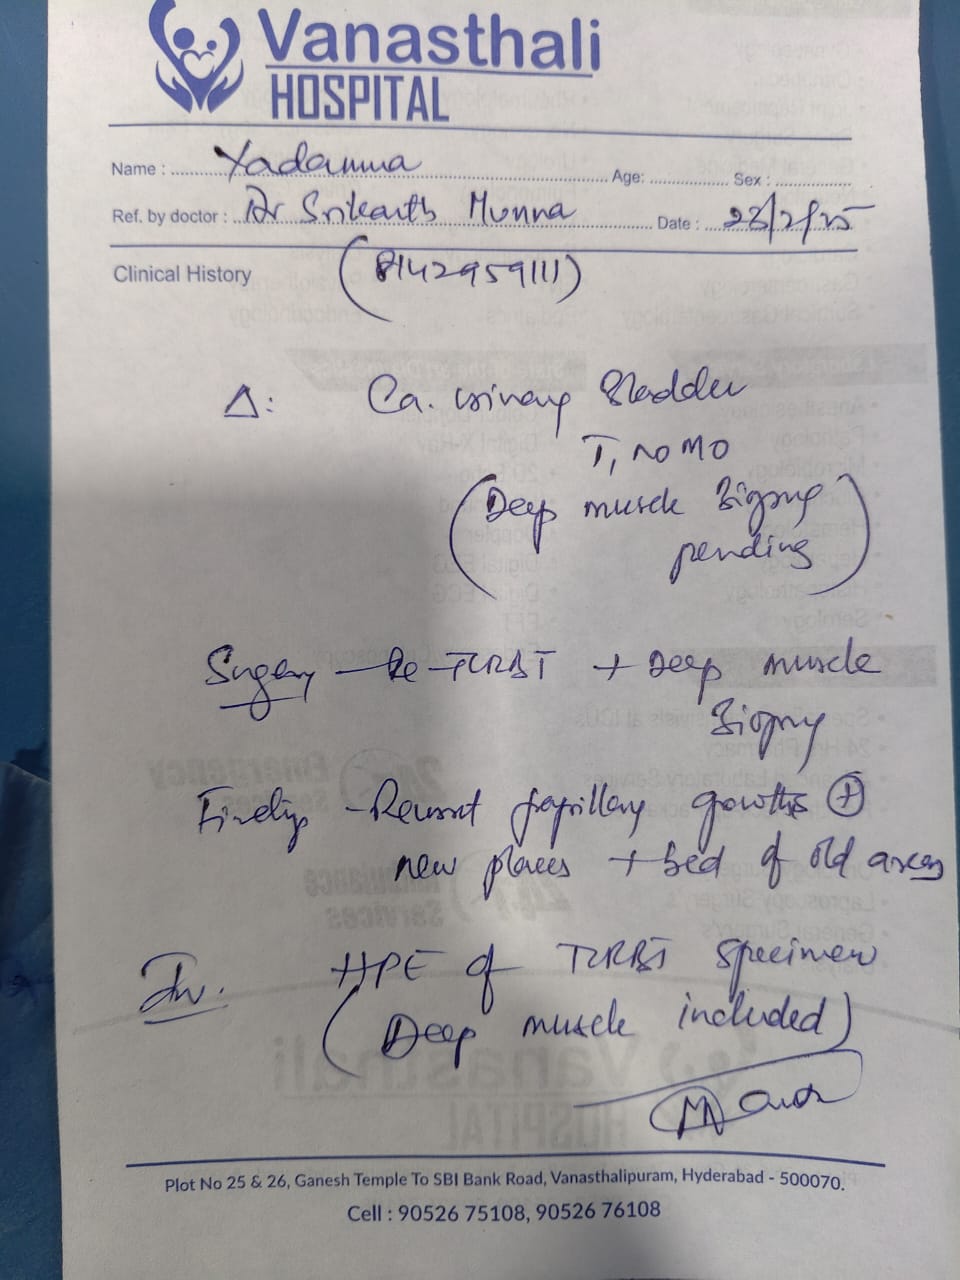 Vanasthali
HOSPITAL
Name : Yadamma Age: Sex :
Ref. by doctor : Dr Srikanth Munna Date : 23/2/25
Clinical History (8142959111)
Δ: Ca. urinary Bladder
T1 N0 M0
(Deep muscle Biopsy
pending)
Surgery - Re-TURBT + Deep muscle
Biopsy
Findings - papillary growths ⊕
new places + bed of old areas
Inv. HPE of TURBT specimen
(Deep muscle included)
Plot No 25 & 26, Ganesh Temple To SBI Bank Road, Vanasthalipuram, Hyderabad - 500070.
Cell : 90526 75108, 90526 76108